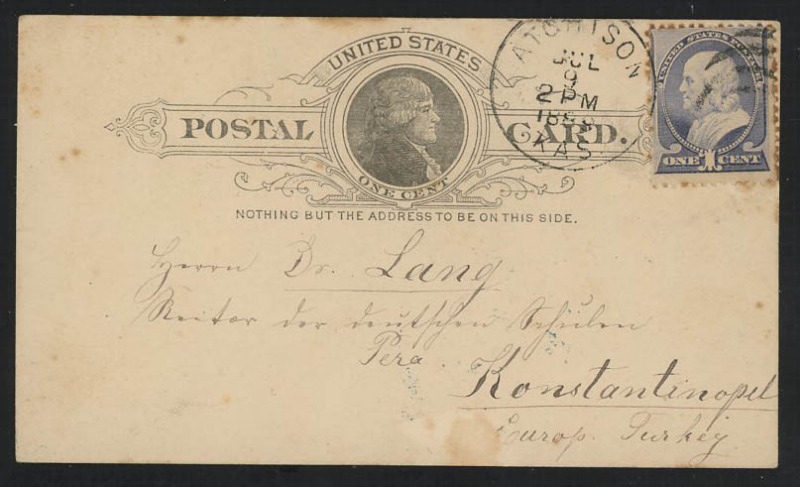 UNITED STATES
POSTAL CARD.
ONE CENT
NOTHING BUT THE ADDRESS TO BE ON THIS SIDE.
ATCHISON
JUL
9
2 PM
KAS
UNITED STATES POSTAGE
ONE 1 CENT
Herrn Dr. Lang
Rektor der deutschen Schulen
Pera
Konstantinopel
Europ. Turkey